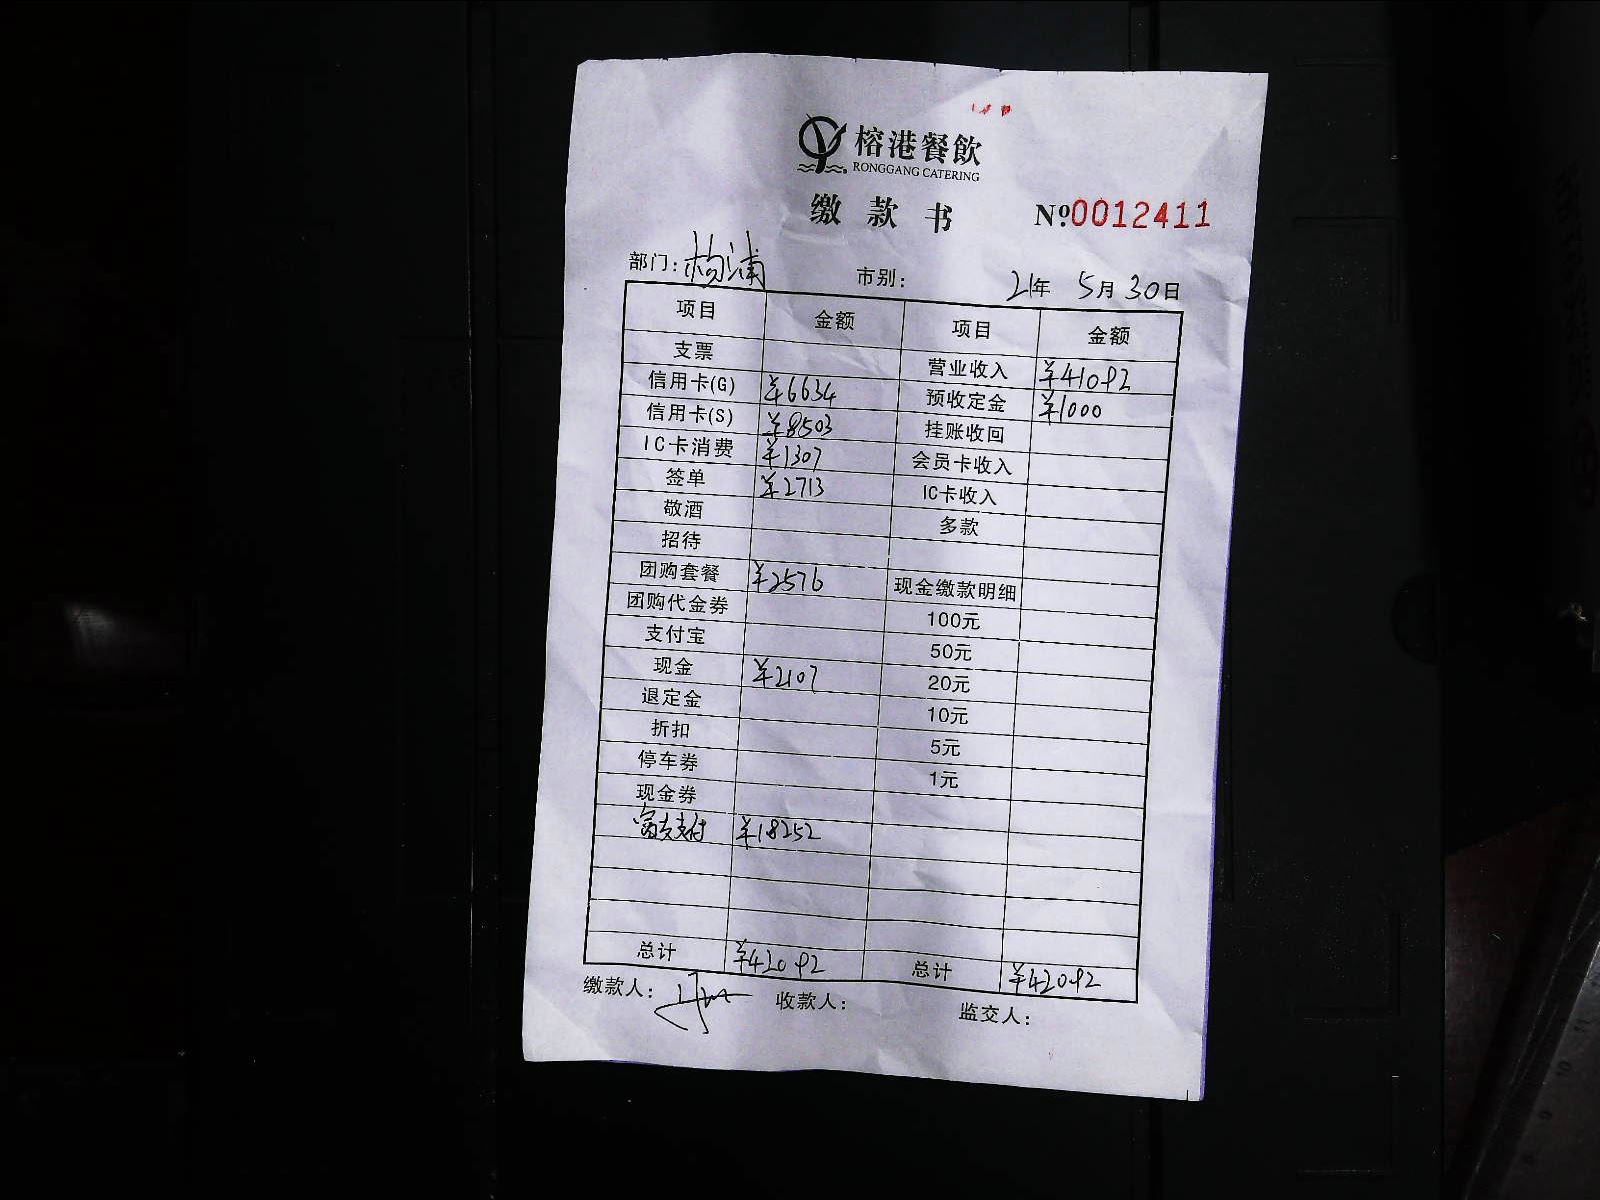 榕港餐飲
RONGGANG CATERING
缴款书 №0012411
部门：杨浦 市别： 21年 5月 30日
项目 金额 项目 金额
支票 营业收入 ¥41092
信用卡(G) ¥6634 预收定金 ¥1000
信用卡(S) ¥8503 挂账收回
IC卡消费 ¥1307 会员卡收入
签单 ¥2713 IC卡收入
敬酒 多款
招待
团购套餐 ¥2576 现金缴款明细
团购代金券 100元
支付宝 50元
现金 ¥2107 20元
退定金 10元
折扣 5元
停车券 1元
现金券
富友支付 ¥18252
总计 ¥42092 总计 ¥42092
缴款人： 收款人： 监交人：